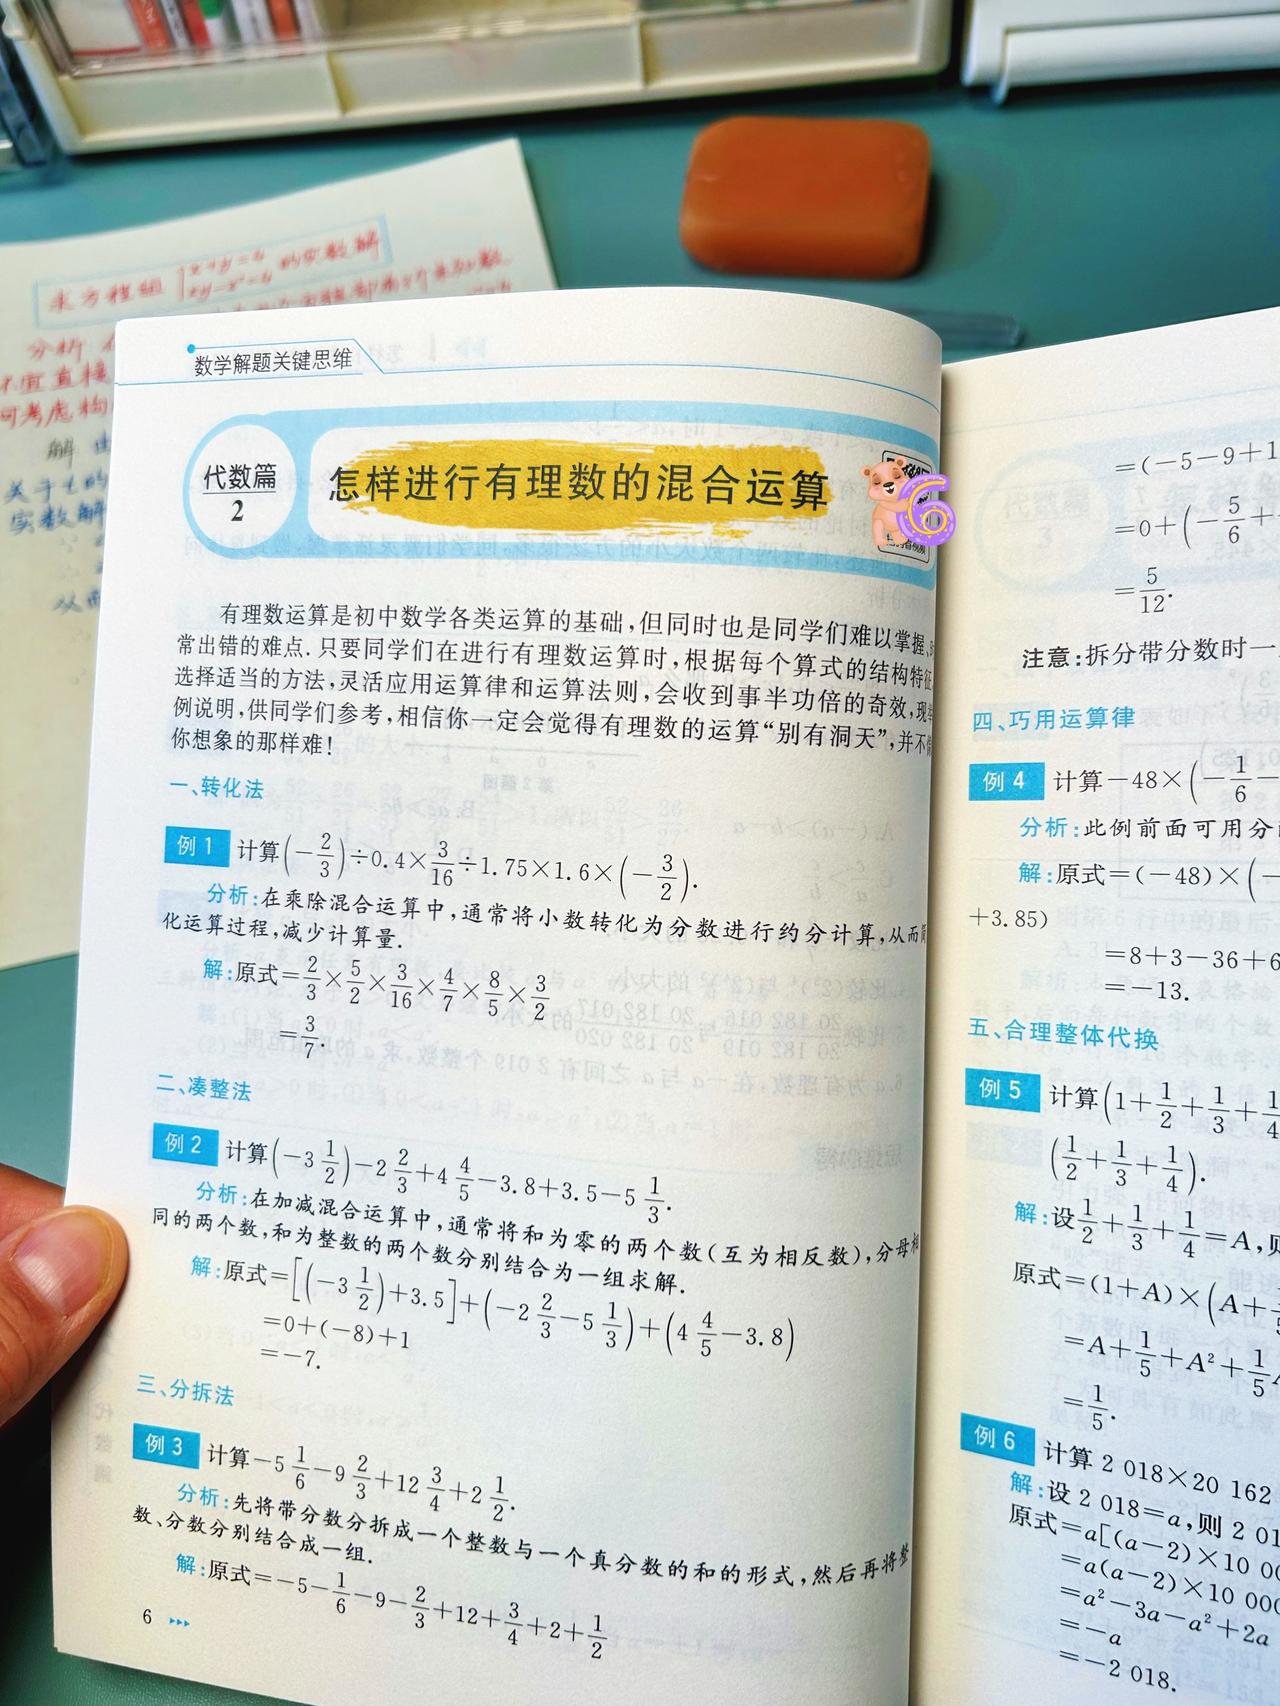 求方程组 {x+y=4 的实数解
xy-z²=4
分析
不宜直接
可考虑构
解 由
关于t的
实数解
从而
数学解题关键思维
代数篇
2
怎样进行有理数的混合运算
6
有理数运算是初中数学各类运算的基础,但同时也是同学们难以掌握、
常出错的难点.只要同学们在进行有理数运算时,根据每个算式的结构特征,
选择适当的方法,灵活应用运算律和运算法则,会收到事半功倍的奇效,现举
例说明,供同学们参考,相信你一定会觉得有理数的运算“别有洞天”,并不像
你想象的那样难!
一、转化法
例 1 计算(-2/3)÷0.4×3/16÷1.75×1.6×(-3/2).
分析:在乘除混合运算中,通常将小数转化为分数进行约分计算,从而简
化运算过程,减少计算量.
解:原式=2/3×5/2×3/16×4/7×8/5×3/2
=3/7.
二、凑整法
例 2 计算(-3 1/2)-2 2/3+4 4/5-3.8+3.5-5 1/3.
分析:在加减混合运算中,通常将和为零的两个数(互为相反数),分母相
同的两个数,和为整数的两个数分别结合为一组求解.
解:原式=[(-3 1/2)+3.5]+(-2 2/3-5 1/3)+(4 4/5-3.8)
=0+(-8)+1
=-7.
三、分拆法
例 3 计算-5 1/6-9 2/3+12 3/4+2 1/2.
分析:先将带分数分拆成一个整数与一个真分数的和的形式,然后再将整
数、分数分别结合成一组.
解:原式=-5-1/6-9-2/3+12+3/4+2+1/2
6
=(-5-9+1
=0+(-5/6+
=5/12.
注意:拆分带分数时一
四、巧用运算律
例 4 计算-48×(-1/6-
分析:此例前面可用分
解:原式=(-48)×(-
+3.85)
=8+3-36+6
=-13.
五、合理整体代换
例 5 计算(1+1/2+1/3+1/4
(1/2+1/3+1/4).
解:设1/2+1/3+1/4=A,则
原式=(1+A)×(A+1/5
=A+1/5+A²+1/5A
=1/5.
例 6 计算 2 018×20 162
解:设 2 018=a,则 2 01
原式=a[(a-2)×10 00
=a(a-2)×10 000
=a²-3a-a²+2a
=-a
=-2 018.